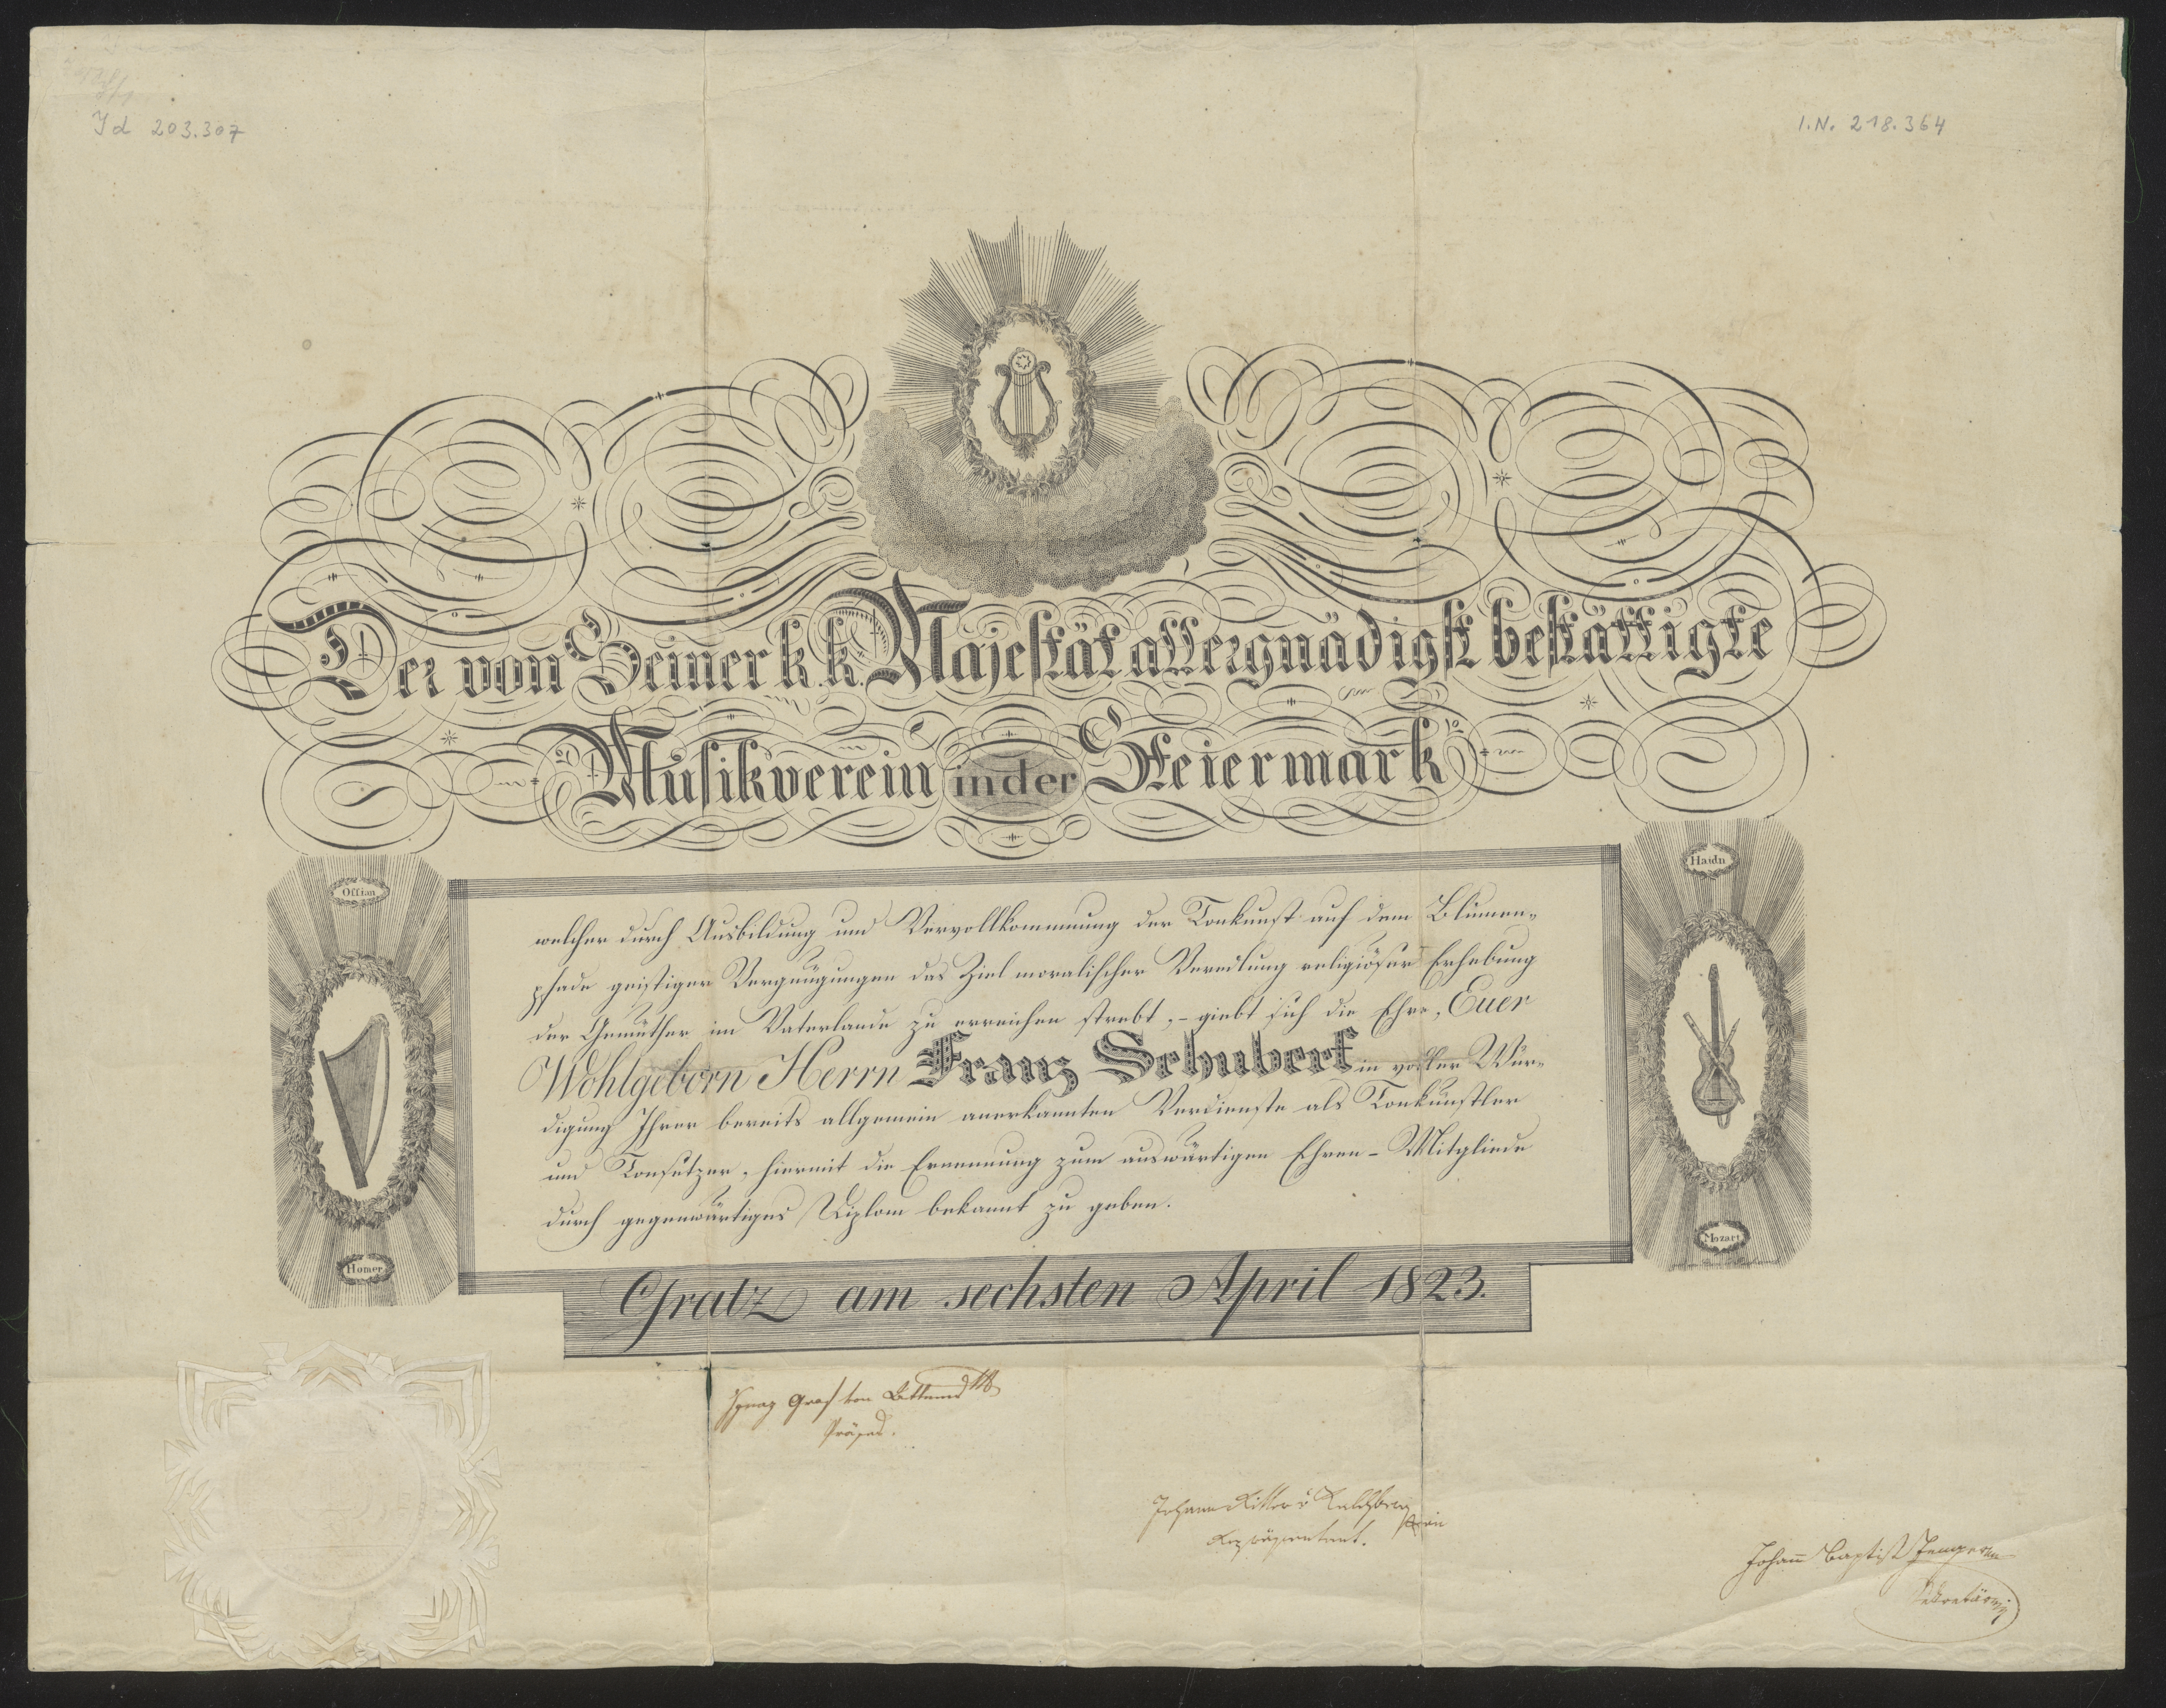 Id 203.307
I.N. 218.364
Der von Seiner k. k. Majestät allergnädigst bestättigte
Musikverein in der Steiermark
Ossian
Haidn
welcher durch Ausbildung und Vervollkommnung der Tonkunst auf dem Blumen-
pfade geistiger Vergnügungen das Ziel moralischer Veredlung religiöser Erhebung
der Gemüther im Vaterlande zu erreichen strebt, - giebt sich die Ehre, Euer
Wohlgeborn Herrn Franz Schubert in voller Wür-
digung Ihrer bereits allgemein anerkannten Verdienste als Tonkünstler
und Tonsetzer, hiermit die Ernennung zum auswärtigen Ehren-Mitgliede
durch gegenwärtiges Diplom bekannt zu geben.
Homer
Mozart
Gratz am sechsten April 1823.
Ignaz Graf von Attems
Präses.
Johann Ritter v Kalchberg
Repräsentant.
Johann Baptist Jenger
Sekretär